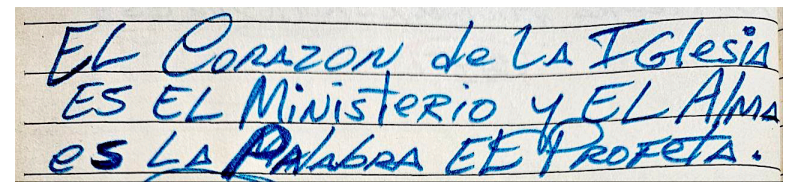 EL CORAZON de LA IGlesia
ES EL MiNisteRio y EL AlMA
es LA PALAbRA EE PROFetA.